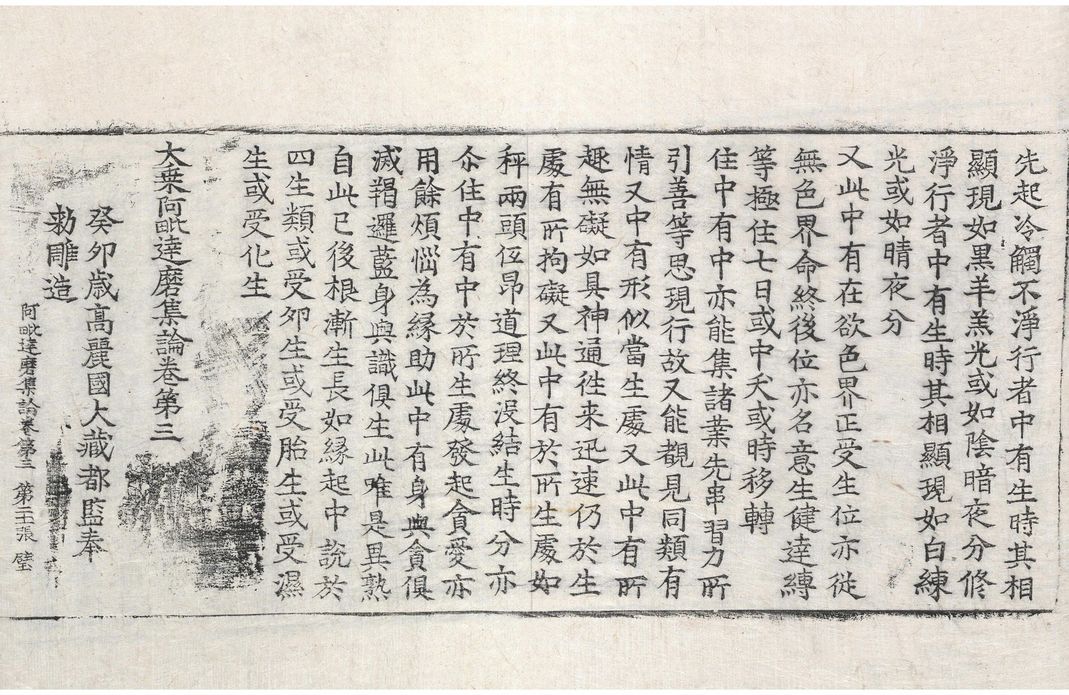 先起冷觸不淨行者中有生時其相
顯現如黑羊羔光或如陰暗夜分修
淨行者中有生時其相顯現如白練
光或如晴夜分
又此中有在欲色界正受生位亦從
無色界命終後位亦名意生健達縛
等極住七日或中夭或時移轉
住中有中亦能集諸業先串習力所
引善等思現行故又能覩見同類有
情又中有形似當生處又此中有所
趣無礙如具神通往来迅速仍於生
處有所拘礙又此中有於所生處如
秤兩頭伍昂道理終没結生時分亦
尒住中有中於所生處發起貪愛亦
用餘煩惱為緣助此中有身與貪俱
滅羯邏藍身與識俱生此唯是異熟
自此已後根漸生長如緣起中說於
四生類或受夘生或受胎生或受濕
生或受化生
大乗阿毗達磨集論卷第三
癸卯歲高麗國大藏都監奉
勅雕造
阿毗達磨集論卷第三 第 張 璧